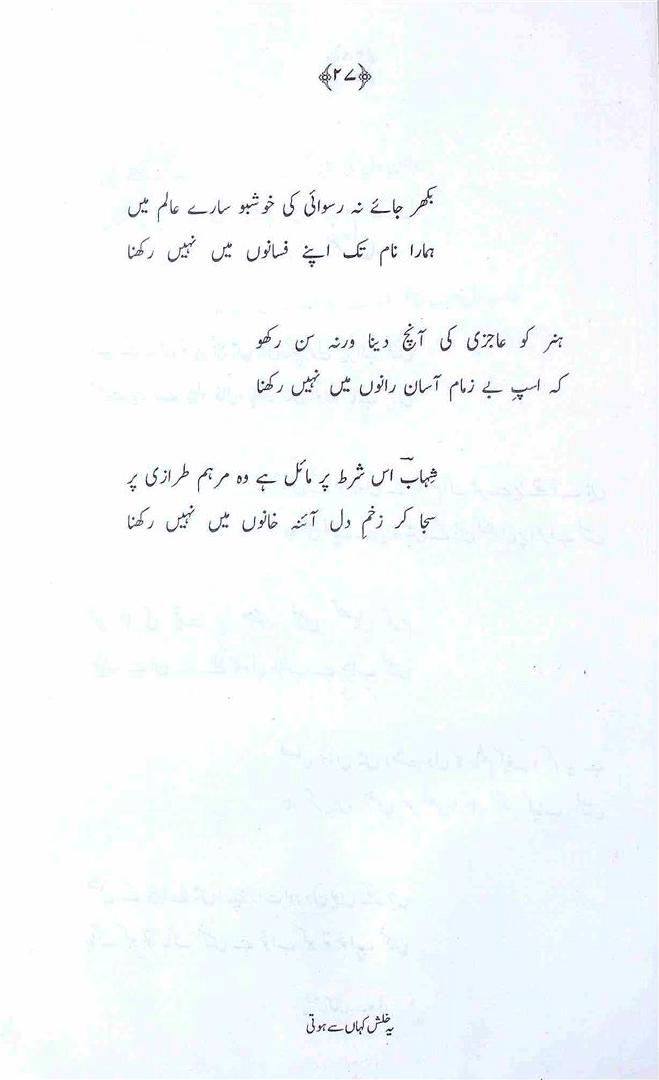 ﴿۲۷﴾
بکھر جائے نہ رسوائی کی خوشبو سارے عالم میں
ہمارا نام تک اپنے فسانوں میں نہیں رکھنا
ہنر کو عاجزی کی آنچ دینا ورنہ سن رکھو
کہ اسپِ بے زمام آسان رانوں میں نہیں رکھنا
شہابؔ اس شرط پر مائل ہے وہ مرہم طرازی پر
سجا کر زخمِ دل آئنہ خانوں میں نہیں رکھنا
یہ خلش کہاں سے ہوتی